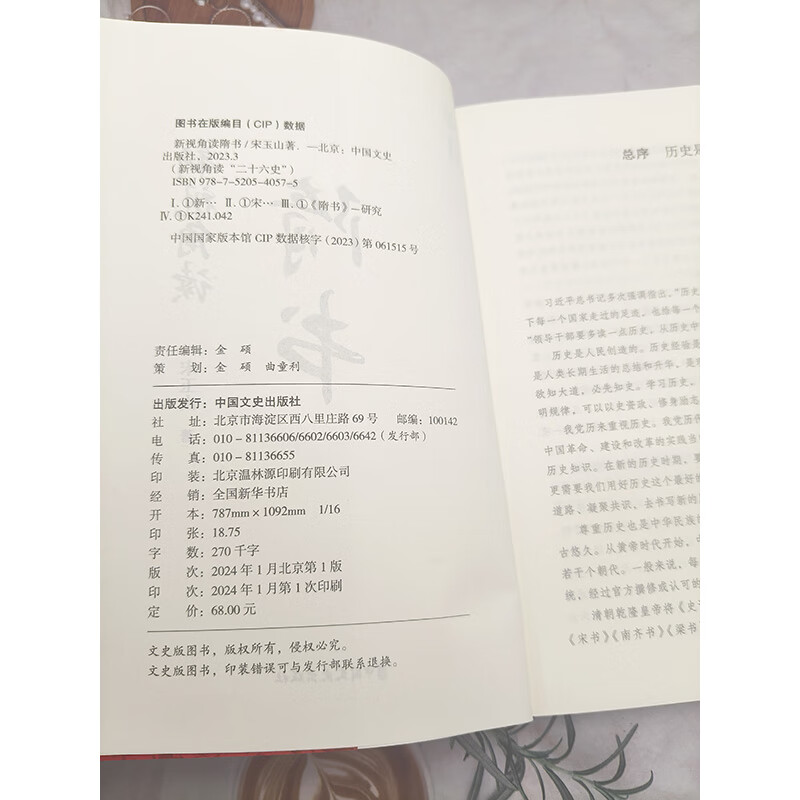 图书在版编目（CIP）数据
新视角读隋书／宋玉山著．—北京：中国文史
出版社，2023.3
（新视角读“二十六史”）
ISBN 978-7-5205-4057-5
Ⅰ.①新… Ⅱ.①宋… Ⅲ.①《隋书》—研究
Ⅳ.①K241.042
中国国家版本馆 CIP 数据核字（2023）第 061515 号
责任编辑：金 硕
策 划：金 硕 曲童利
出版发行：中国文史出版社
社 址：北京市海淀区西八里庄路 69 号 邮编：100142
电 话：010－81136606/6602/6603/6642（发行部）
传 真：010－81136655
印 装：北京温林源印刷有限公司
经 销：全国新华书店
开 本：787mm×1092mm 1/16
印 张：18.75
字 数：270 千字
版 次：2024 年 1 月北京第 1 版
印 次：2024 年 1 月第 1 次印刷
定 价：68.00 元
文史版图书，版权所有，侵权必究。
文史版图书，印装错误可与发行部联系退换。
总序 历史是
习近平总书记多次强调指出，“历史
下每一个国家走过的足迹，也给每一个
“领导干部要多读一点历史，从历史中
历史是人民创造的。历史经验是
是人类长期生活的总结和升华，是
欲知大道，必先知史。学习历史，
明规律，可以以史资政、修身励志
我党历来重视历史。我党历代
中国革命、建设和改革的实践当
历史知识。在新的历史时期，要
更需要我们用好历史这个最好的
道路、凝聚共识，去书写新的
尊重历史也是中华民族的
古悠久。从黄帝时代开始，中
若干个朝代。一般来说，每
统，经过官方撰修或认可的
清朝乾隆皇帝将《史
《宋书》《南齐书》《梁书